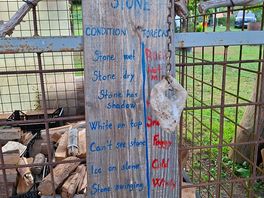 STONE
CONDITION
Stone wet
Stone dry
Stone has
shadow
White on top
Can't see stone Foggy
Ice on stone Cold
Stone swinging Windy